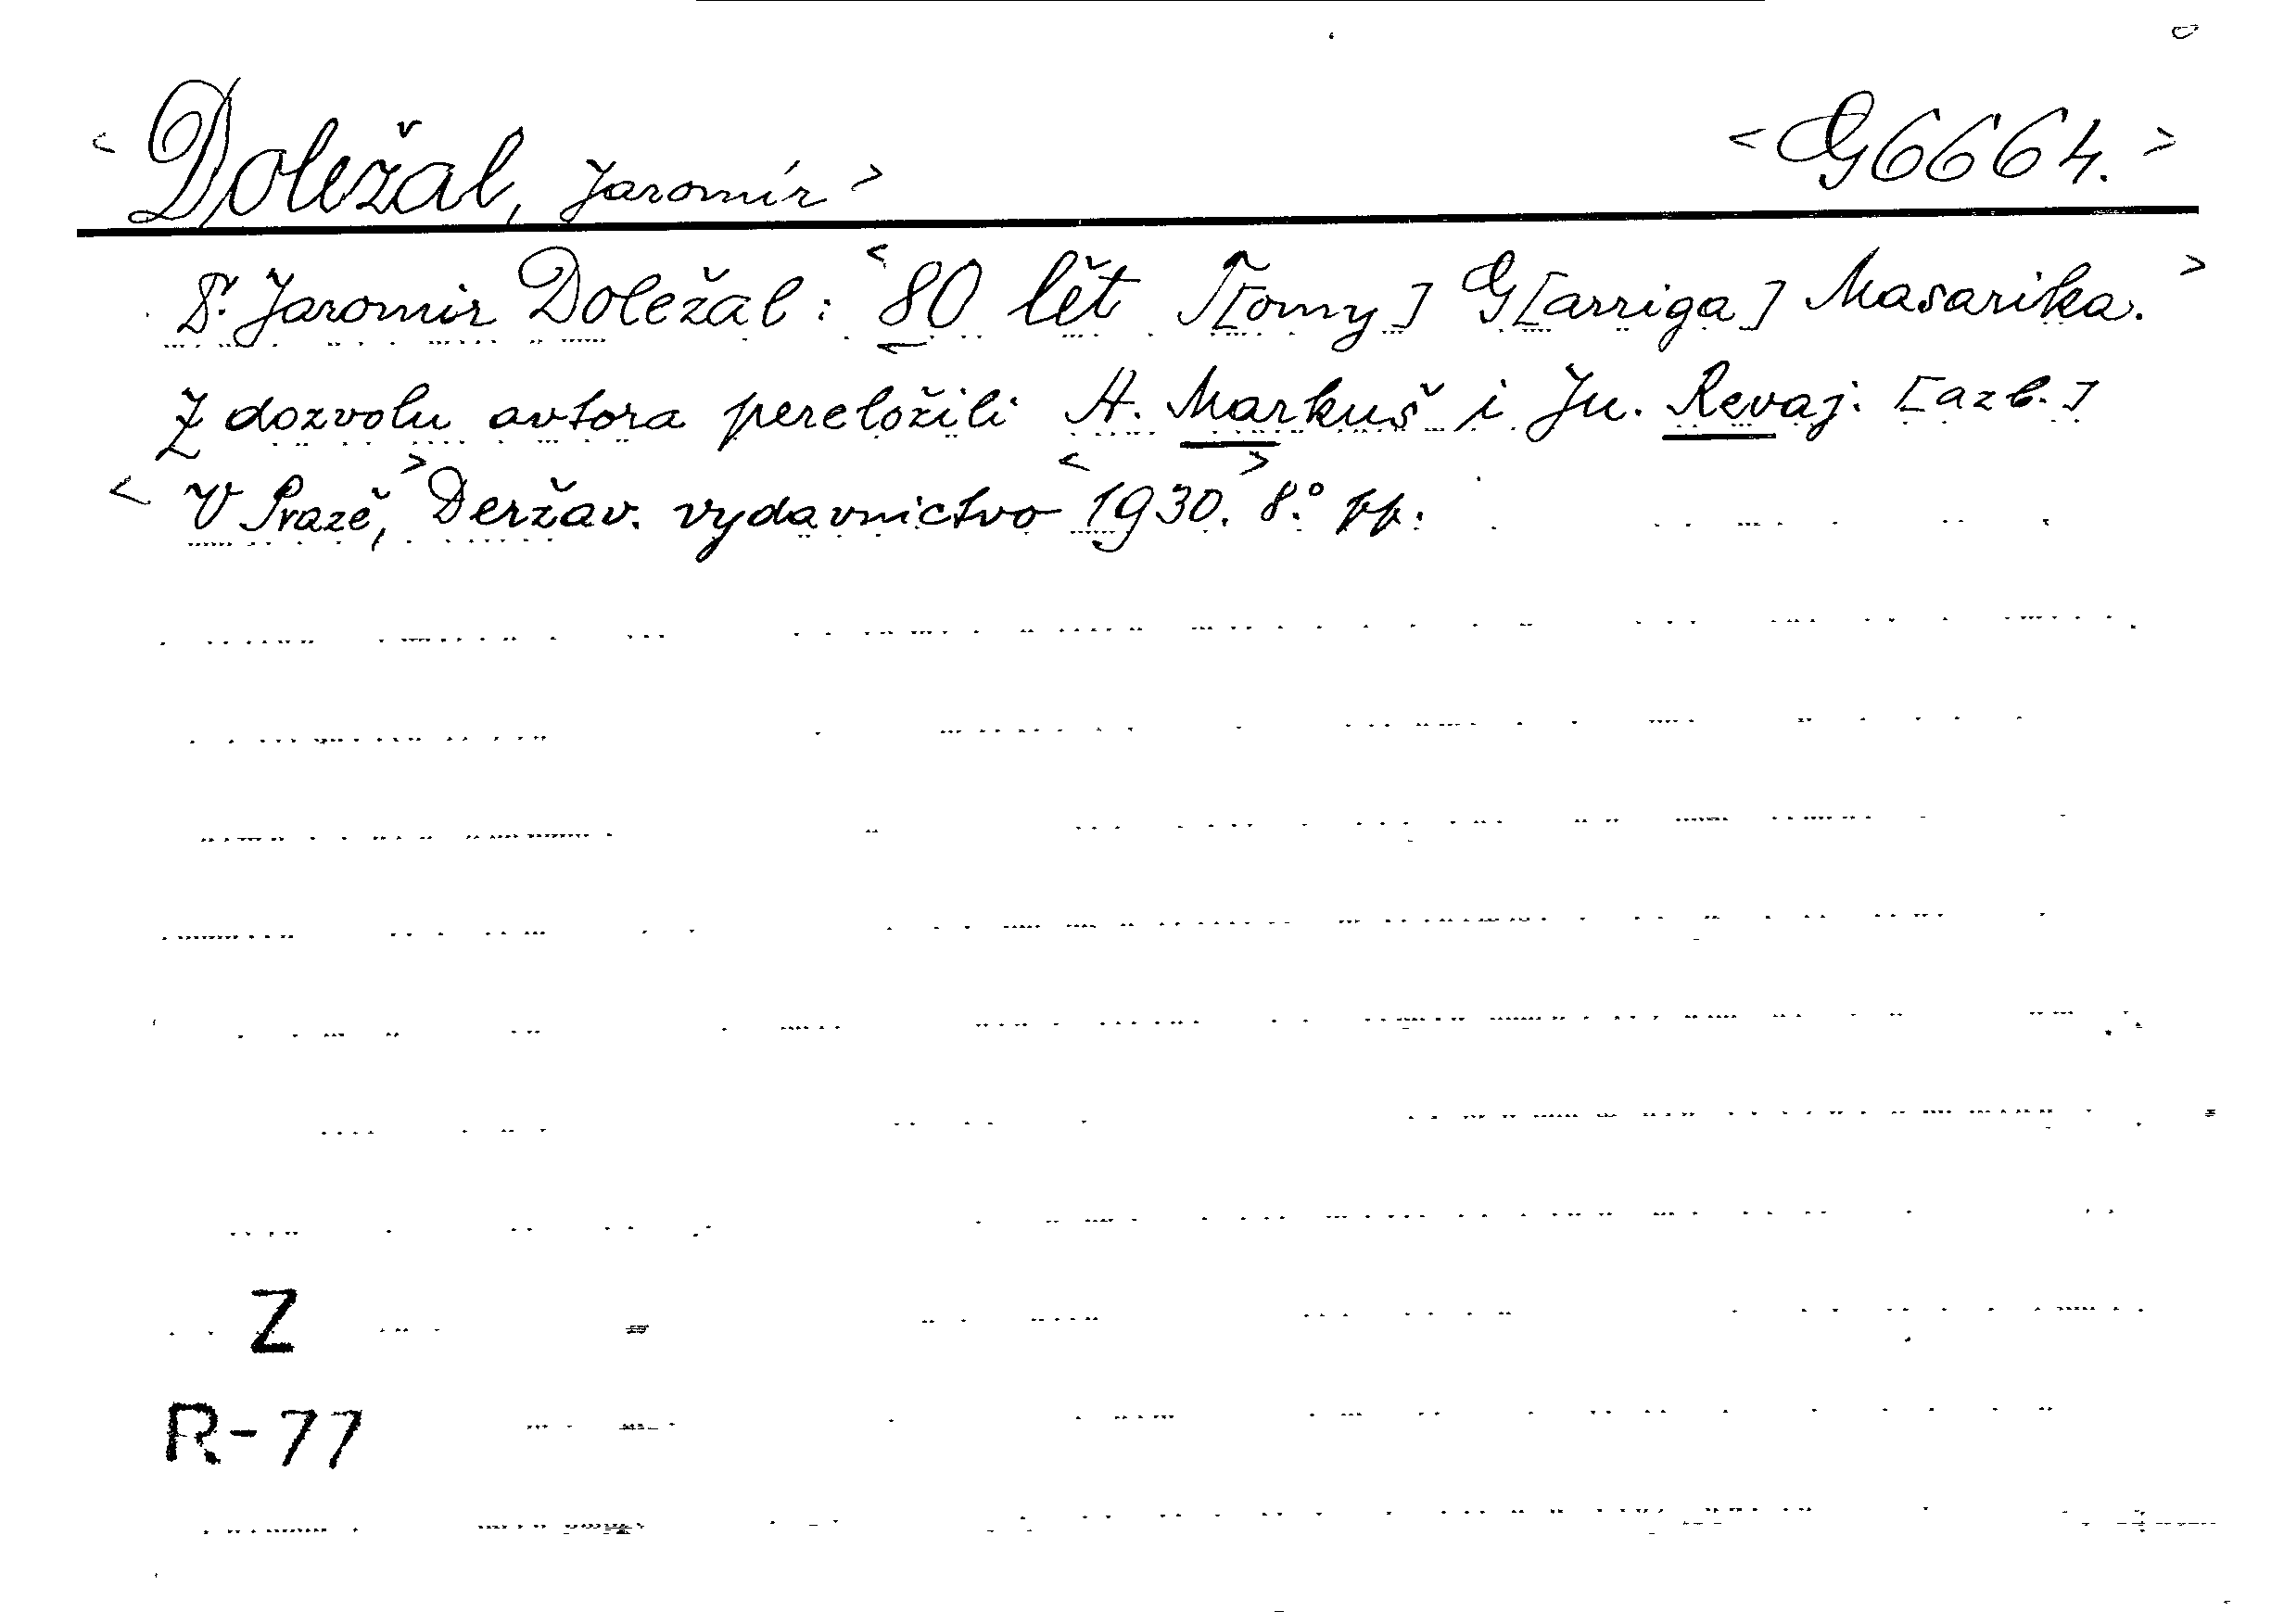 < Doležal, Jaromír > < G 6664. >
Dr. Jaromír Doležal : < 80 lět T[omy] G[arriga] Masarika. >
Z dozvolu avtora pereložili A. Markuš i Ju. Revaj. [azb.]
< V Prazě, > Deržav. vydavnictvo < 1930. > 8.° pp.
Z
R-77